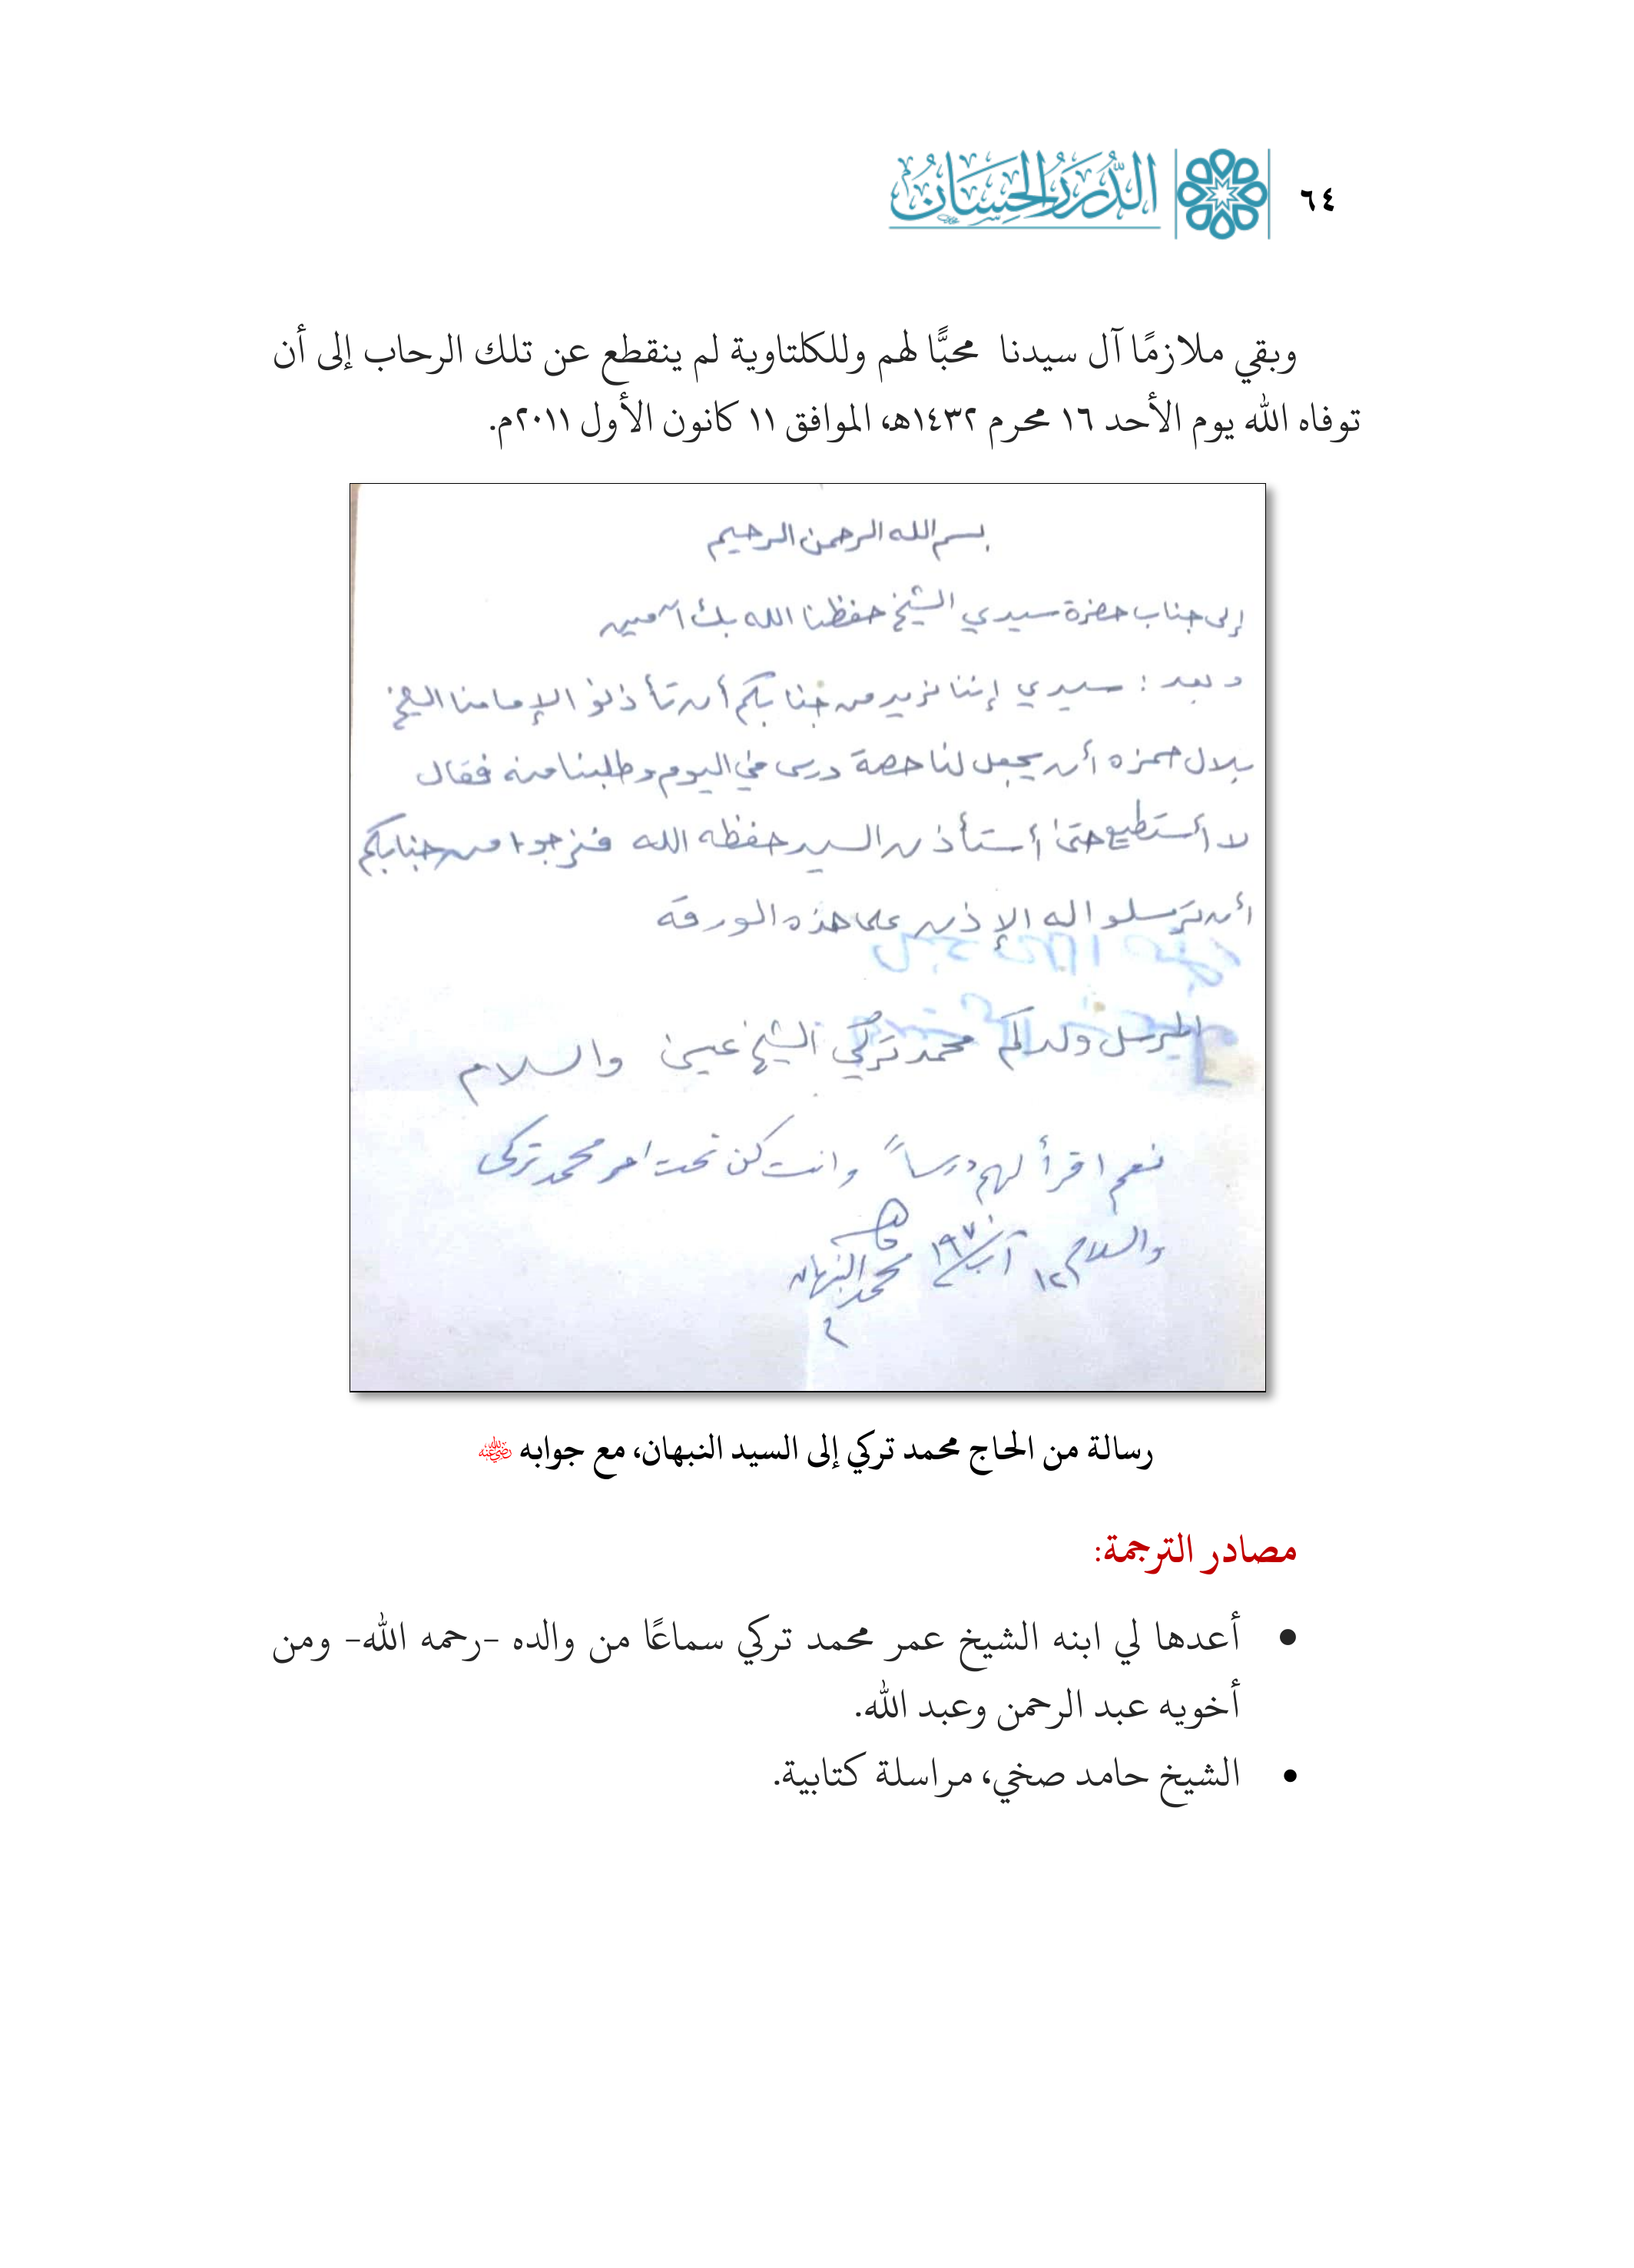 ٦٤
الدُّرَرُ الحِسَانُ
وبقي ملازمًا آل سيدنا محبًّا لهم وللكلتاوية لم ينقطع عن تلك الرحاب إلى أن
توفاه الله يوم الأحد ١٦ محرم ١٤٣٢هـ، الموافق ١١ كانون الأول ٢٠١١م.
بسم الله الرحمن الرحيم
إلى جناب حضرة سيدي الشيخ حفظنا الله بك آمين
وبعد : سيدي إننا نريد من جنابكم أن تأذنو الإمامنا الشيخ
بلال حمزه أن يجعل لنا حصة درس في اليوم وطلبنا منه فقال
لا أستطيع حتى أستأذن السيد حفظه الله فنرجوا من جنابكم
أن ترسلوا له الإذن على هذه الورقة
المرسل ولدكم محمد تركي الشيخ عيسى والسلام
نعم اقرأ لهم درساً وانت كن تحت امر محمد تركي
والسلام ١٢ آب ١٩٧٠
محمد النبهان
رسالة من الحاج محمد تركي إلى السيد النبهان، مع جوابه رضي الله عنه
مصادر الترجمة:
• أعدها لي ابنه الشيخ عمر محمد تركي سماعًا من والده -رحمه الله- ومن
أخويه عبد الرحمن وعبد الله.
• الشيخ حامد صخي، مراسلة كتابية.